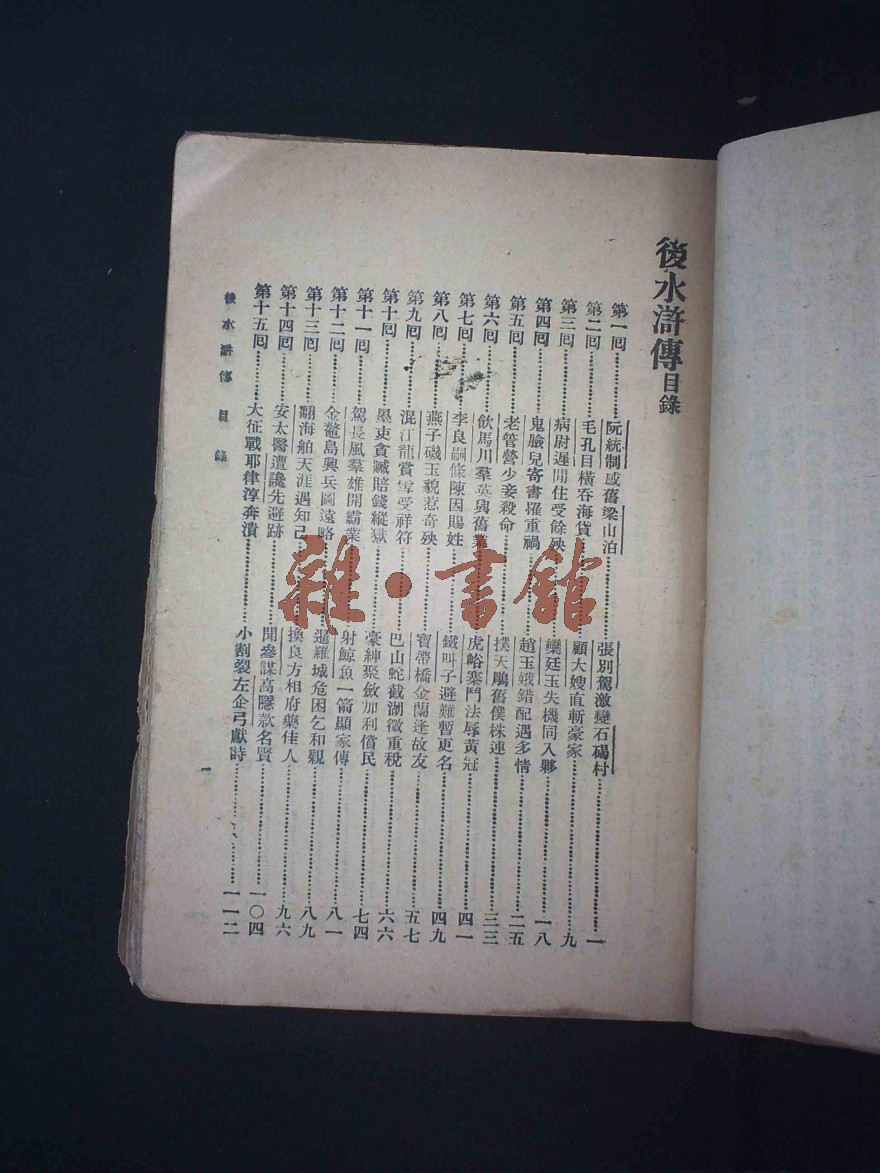 後水滸傳目錄
第一回 阮統制感舊梁山泊 張別駕激變石碣村 一
第二回 毛孔目橫吞海貨 顧大嫂直斬豪家 九
第三回 病尉遲閒住受餘殃 欒廷玉失機同入夥 一八
第四回 鬼臉兒寄書罹重禍 趙玉娥錯配遇多情 二五
第五回 老管營少妾殺命 撲天鵰舊僕株連 三三
第六回 飲馬川羣英興舊業 虎峪寨鬥法辱黃冠 四一
第七回 李良嗣條陳因賜姓 鐵叫子避難暫更名 四九
第八回 燕子磯玉貌惹奇殃 寶帶橋金蘭逢故友 五七
第九回 混江龍賞雪受祥符 巴山蛇截湖徵重稅 六六
第十回 墨吏貪贓賠錢縱獄 豪紳聚斂加利償民 七四
第十一回 駕長風羣雄開霸業 射鯨魚一箭顯家傳 八一
第十二回 金鰲島興兵圖遠略 暹羅城危困乞和親 八九
第十三回 翻海舶天涯遇知己 換良方相府藥佳人 九六
第十四回 安太醫遭讒先避跡 聞參謀高隱款名賢 一〇四
第十五回 大征戰耶律淳奔潰 小割裂左企弓獻詩 一一二
後水滸傳目錄
一
雜·書館